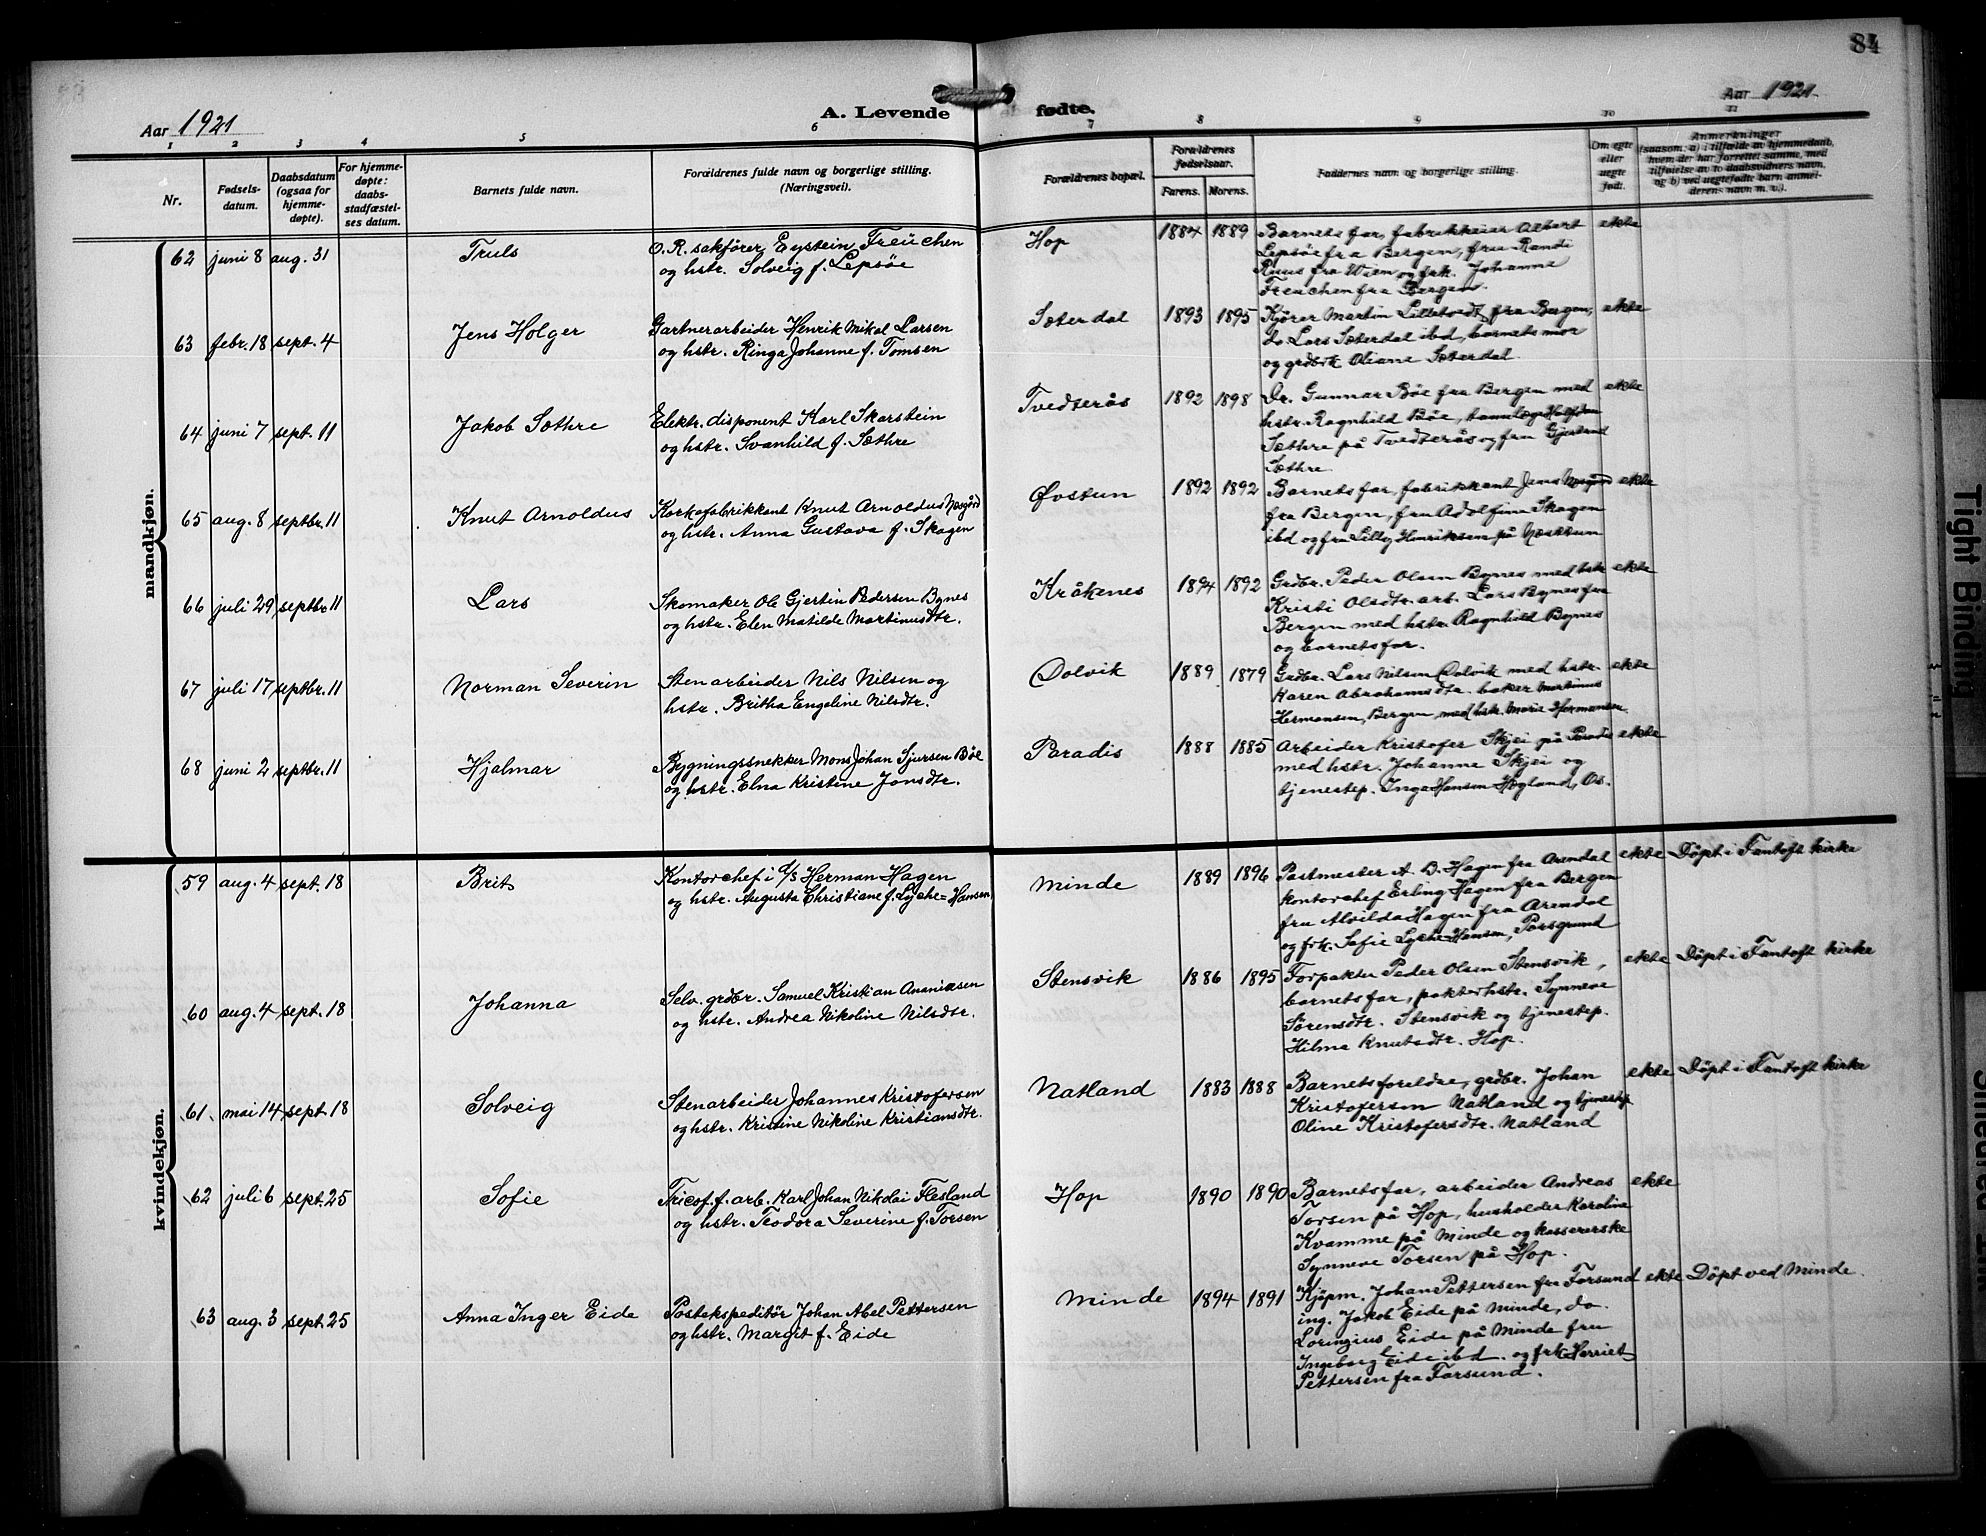 84
Aar 1921
A. Levende fødte.
Aar 1921.
1 2 3 4 5 6 7 8 9 10 11
Nr.
Fødsels-
datum.
Daabsdatum
(ogsaa for
hjemme-
døpte).
For hjemme-
døpte:
daabs-
stadfæstel-
ses datum.
Barnets fulde navn.
Forældrenes fulde navn og borgerlige stilling.
(Næringsvei).
Forældrenes bopæl.
Forældrenes
fødselsaar.
Farens. Morens.
Faddernes navn og borgerlige stilling.
Om egte
eller
uegte
født.
Anmerkninger
(saasom: a) i tilfælde av hjemmedaab,
hvem der har forrettet samme, med
tilføielse av to daabsvidners navn,
og b) ved uegtefødte barn anmel-
derens navn m. v.).
mandkjøn.
62 juni 8 aug. 31 Truls
O.R. sakfører Eystein Freüchen
og hstr. Solveig f. Lepsöe
Hop 1884 1889
Barnets far, fabrikkeier Albert
Lepsöe fra Bergen, fru Randi
fra Wien og frk. Johanne
Freuchen fra Bergen.
ekte
63 febr. 18 sept. 4 Jens Holger
Gartnerarbeider Henrik Mikal Larsen
og hstr. Ringa Johanne f. Tomsen
Sæterdal 1893 1895
Kjörer Martin Lilletvedt fra Bergen,
do Lars Sæterdal ibd, barnets mor
og grdbrk Oliane Sæterdal
ekte
64 juni 7 sept. 11 Jakob Sæthre
Elektr. disponent Karl Skarstein
og hstr. Svanhild f. Sæthre
Tvedterås 1892 1898
Dr. Gunnar Böe fra Bergen med
hstr. Ragnhild Böe, tannlæge Halfdan
Sæthre på Tvedterås og fru Gjertrud
Sæthre
ekte
65 aug. 8 septbr. 11 Knut Arnoldus
Korkefabrikkant Knut Arnoldus Næsgård
og hstr. Anna Gustava f. Skagen
Øvstun 1892 1892
Barnets far, fabrikkant Jens Næsgård
fra Bergen, fru Adolfine Skagen
ibd og fru Lilly Henriksen på Næsttun
ekte
66 juli 29 septbr. 11 Lars
Skomaker Ole Gjertin Pedersen Bynes
og hstr. Elen Matilde Martinusdtr.
Kråkenes 1894 1892
Grdbr. Peder Olsen Bynes med hstr
Kristi Olsdtr. arb. Lars Bynes fra
Bergen med hstr. Ragnhild Bynes
og barnets far.
ekte
67 juli 17 septbr. 11 Norman Severin
Stenarbeider Nils Nilsen og
hstr. Britha Engeline Nilsdtr.
Dolvik 1889 1879
Grdbr. Lars Nilsen Dolvik med hstr.
Karen Abrahamsdtr. baker Martinus
Hermansen, Bergen, med hstr. Marie Hermansen.
ekte
68 juni 2 septbr. 11 Hjalmar
Bygningssnekker Mons Johan Sjursen Böe
og hstr. Elna Kristine Jonsdtr.
Paradis 1888 1885
Arbeider Kristofer Skjei på Paradis
med hstr. Johanne Skjei og
tjenestep. Inga Hansen Hegland, Os.
ekte
kvindekjøn.
59 aug. 4 sept. 18 Brit
Kontorchef i A/S Herman Hagen
og hstr. Augusta Christiane f. Lyche-Hansen
Minde 1889 1896
Postmester A. B. Hagen fra Arendal
kontorchef Erling Hagen fra Bergen
fru Alvilda Hagen fra Arendal
og frk. Sofie Lyche Hansen, Porsgrund
ekte Döpt i Fantoft kirke
60 aug. 4 sept. 18 Johanna
Selv. grdbr. Samuel Kristian Ananiasen
og hstr. Andrea Nikoline Nilsdtr.
Stensvik 1886 1895
Forpakter Peder Olsen Stensvik,
barnets far, pakterhstr. Synneve
Sörensdtr. Stensvik og tjenestep.
Hilma Knutsdtr. Hop.
ekte Döpt i Fantoft kirke
61 mai 14 sept. 18 Solveig
Stenarbeider Johannes Kristofersen
og hstr. Kristine Nikoline Kristiansdtr.
Natland 1883 1888
Barnets foreldre, grdbr. Johan
Kristofersen Natland og tjenestep
Oline Kristofersdtr. Natland
ekte Döpt i Fantoft kirke
62 juli 6 sept. 25 Sofie
Tricof. f. arb. Karl Johan Nikolai Flesland
og hstr. Teodora Severine f. Torsen
Hop 1890 1890
Barnets far, arbeider Andreas
Torsen på Hop, husholder Karoline
Kvamme på Minde og kassererske
Synneve Torsen på Hop.
ekte
63 aug. 3 sept. 25 Anna Inger Eide
Postekspeditör Johan Abel Pettersen
og hstr. Margit f. Eide
Minde 1894 1891
Kjöpm. Johan Pettersen fra Farsund
ing. Jakob Eide på Minde, do.
Lorenzius Eide på Minde fru
Ingeborg Eide ibd. og frk. Harriet
Pettersen fra Farsund.
ekte Döpt ved Minde.
Tight Binding